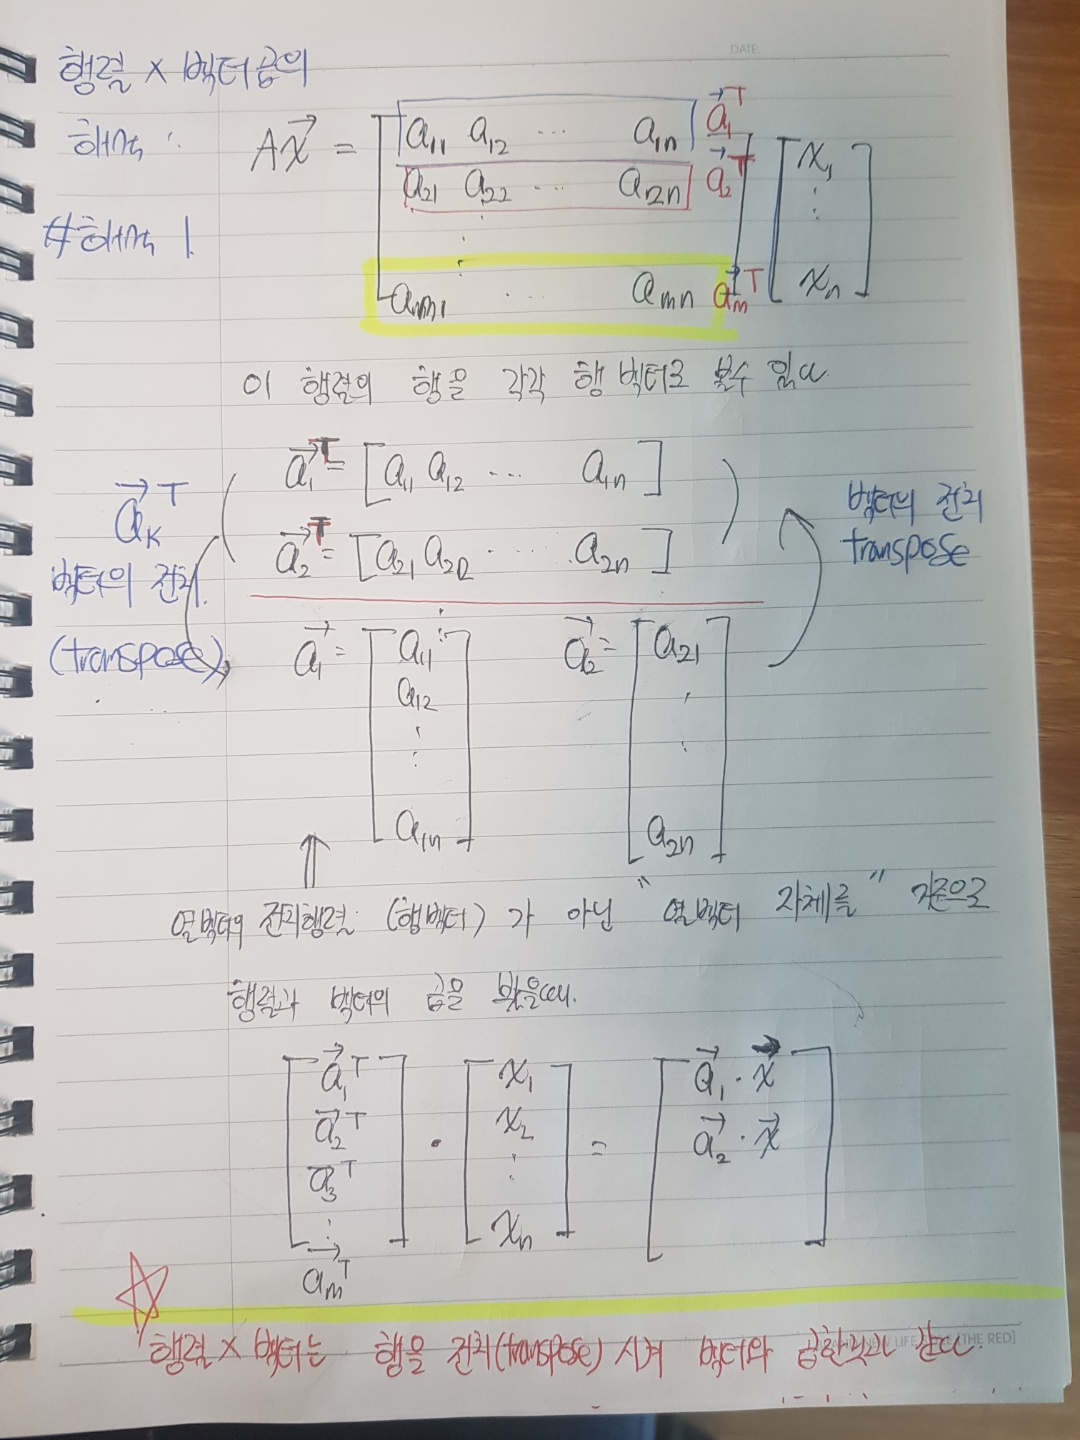 DATE.
행렬 × 벡터곱의
해석 :
A\vec{x} = [a₁₁ a₁₂ ⋯ a₁ₙ \vec{a}₁ᵀ
a₂₁ a₂₂ ⋯ a₂ₙ \vec{a}₂ᵀ
⋮
aₘ₁ ⋯ aₘₙ \vec{a}ₘᵀ] [x₁ ⋮ xₙ]
#해석 1.
이 행렬의 행을 각각 행 벡터로 볼수 있다.
\vec{a}₁ᵀ = [a₁₁ a₁₂ ⋯ a₁ₙ]
\vec{a}₂ᵀ = [a₂₁ a₂₂ ⋯ a₂ₙ]
\vec{a}ₖᵀ
벡터의 전치.
(transpose),
벡터의 전치
transpose
\vec{a}₁ = [a₁₁ a₁₂ ⋮ a₁ₙ] \vec{a}₂ = [a₂₁ ⋮ a₂ₙ]
열벡터의 전치행렬 (행벡터) 가 아닌 "열벡터 자체를" 기준으로
행렬과 벡터의 곱을 봤을때.
[\vec{a}₁ᵀ \vec{a}₂ᵀ \vec{a}₃ᵀ ⋮ \vec{a}ₘᵀ] · [x₁ x₂ ⋮ xₙ] = [\vec{a}₁·\vec{x} \vec{a}₂·\vec{x}]
행렬 × 벡터는 행을 전치(transpose) 시켜 벡터와 곱한것과 같다.
(THE RED)